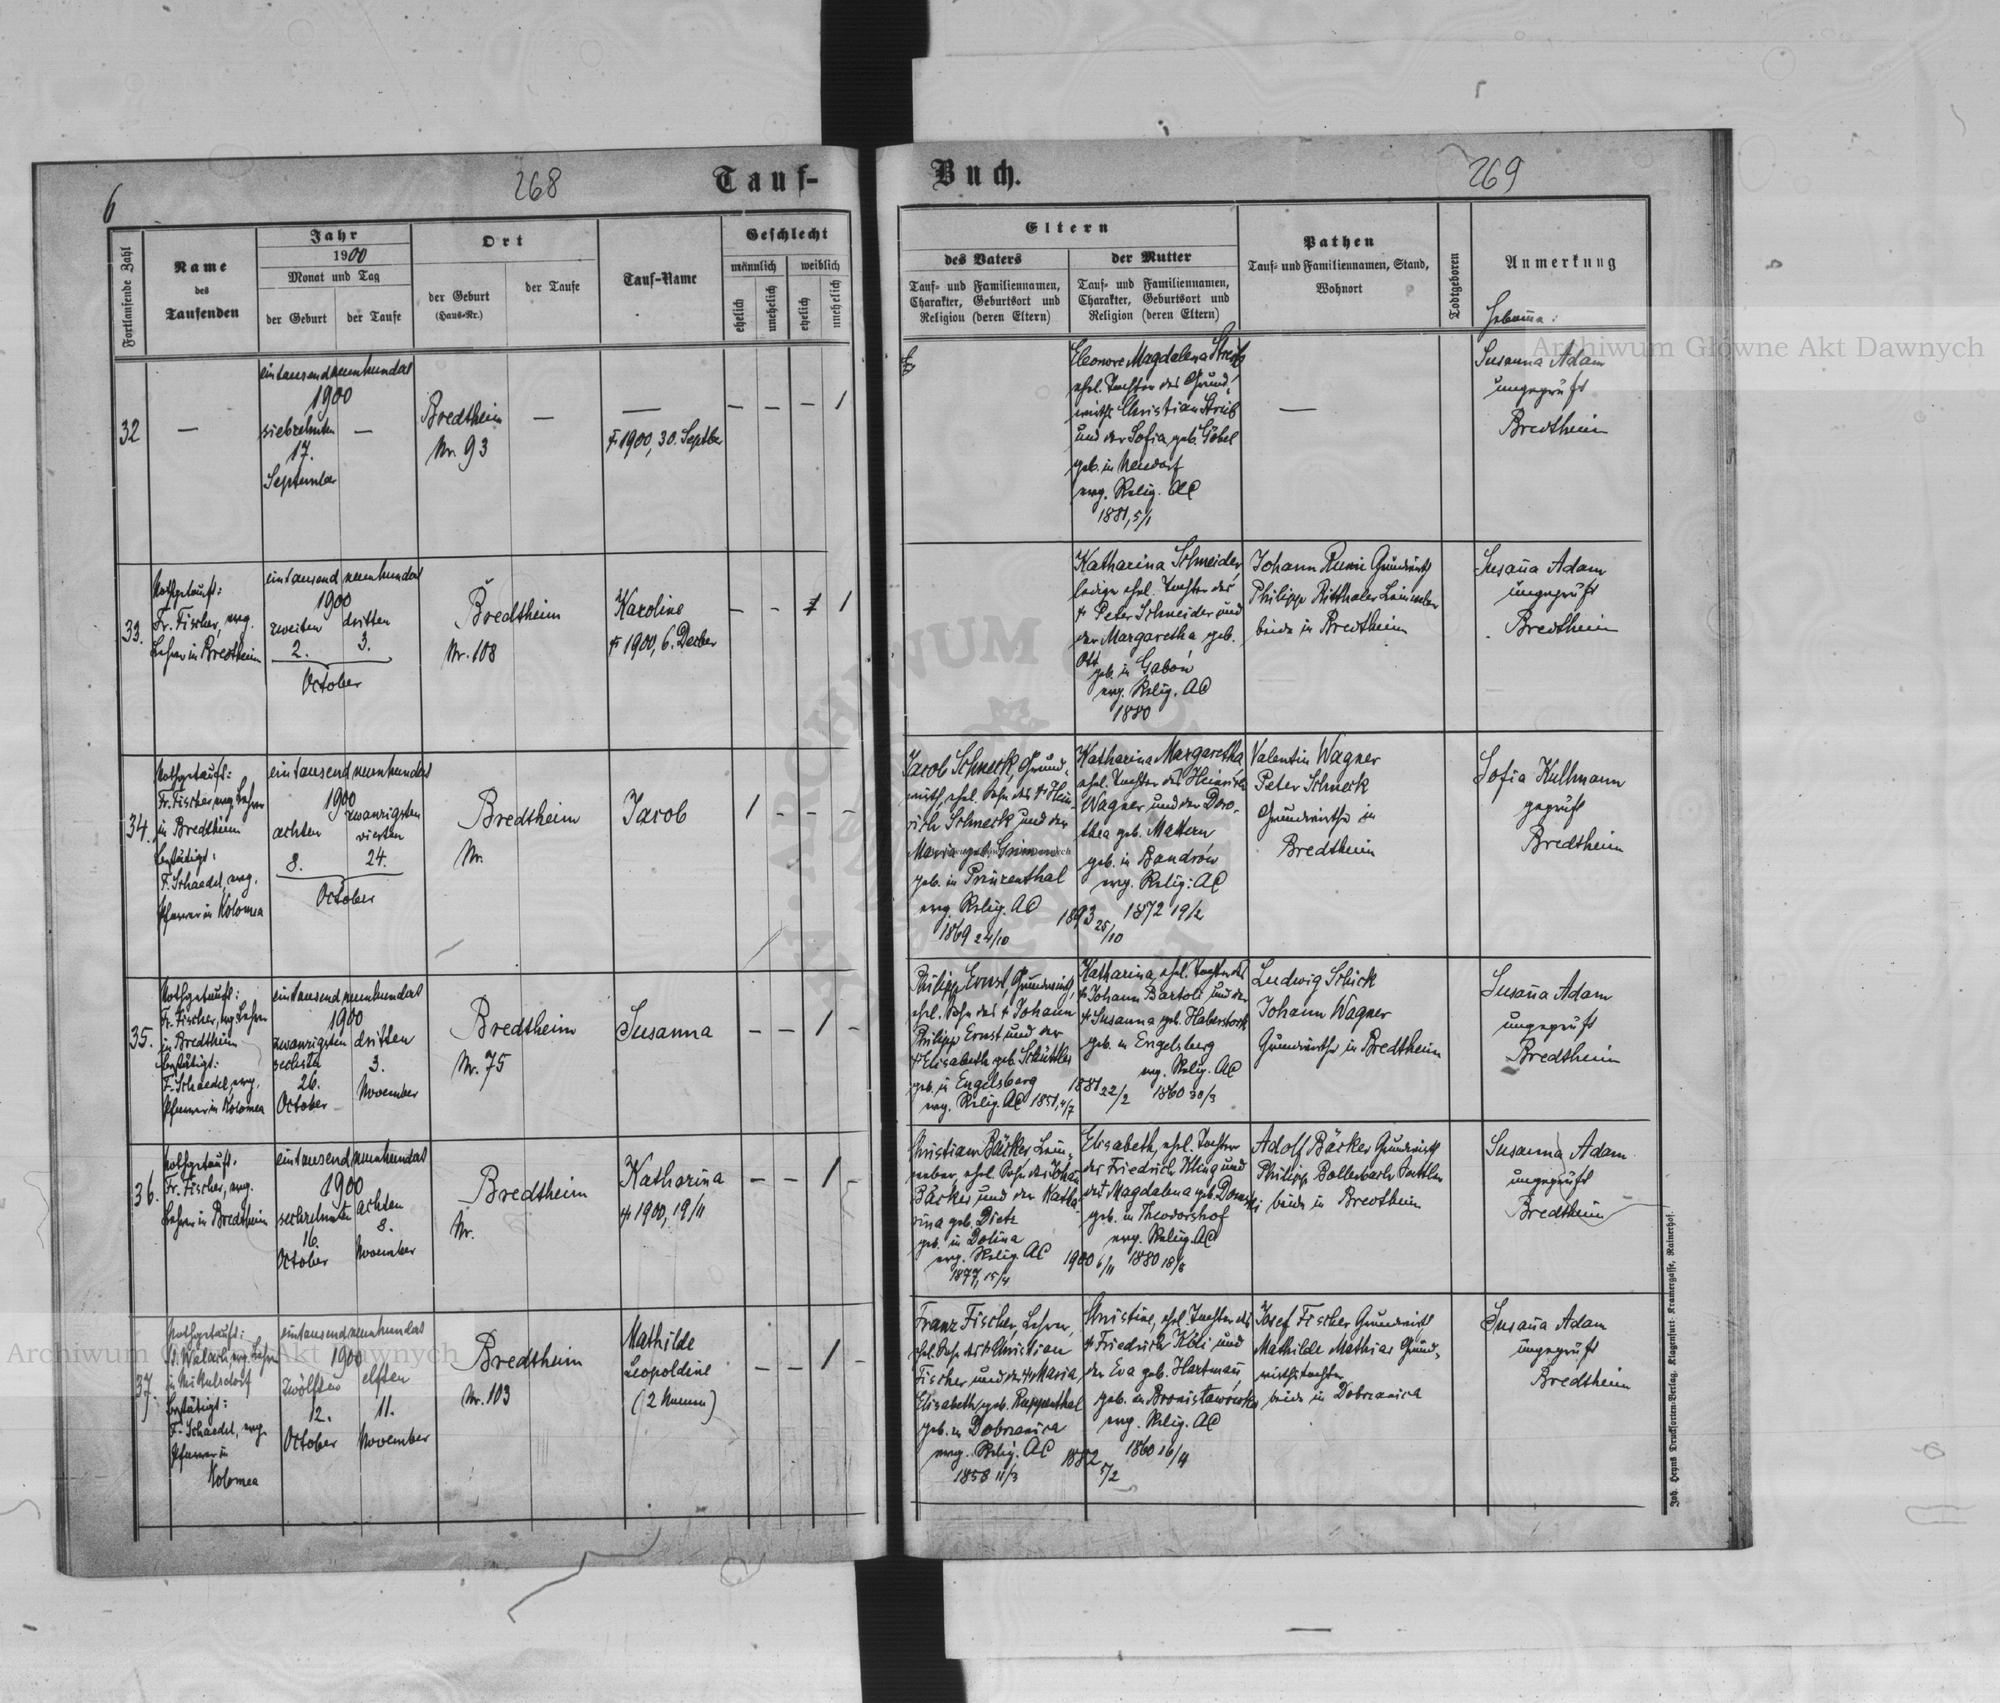 6
268
Tauf-
Fortlaufende Zahl
Name
des
Taufenden
Jahr
1900
Monat und Tag
der Geburt
der Taufe
Ort
der Geburt
(Haus-Nr.)
der Taufe
Tauf-Name
Geschlecht
männlich
weiblich
ehelich
unehelich
ehelich
unehelich
32
—
eintausendneunhundert
1900
siebzehnten
17.
September
—
Bredtheim
Nr. 93
—
—
† 1900, 30. Septber
— — — 1
33.
Nothgetauft:
Fr. Fischer, evg.
Lehrer in Bredtheim
eintausendneunhundert
1900
zweiten dritten
2. 3.
October
Bredtheim
Nr. 108
Karoline
† 1900, 6. Decber
— - 1 1
34.
Nothgetauft:
Fr. Fischer, evg. Lehrer
in Bredtheim
bestätigt:
F. Schaedel, evg.
Pfarrer in Kolomea
eintausendneunhundert
1900
achten zwanzigsten
vierten
8. 24.
October
Bredtheim
Nr.
Jacob
1 - - -
35.
Nothgetauft:
Fr. Fischer, evg. Lehrer
in Bredtheim
bestätigt:
F. Schaedel, evg.
Pfarrer in Kolomea
eintausendneunhundert
1900
zwanzigsten dritten
sechste 3.
26.
October November
Bredtheim
Nr. 75
Susanna
- - 1 -
36.
Nothgetauft:
Fr. Fischer, evg.
Lehrer in Bredtheim
eintausendneunhundert
1900
sechzehnten achten
16. 8.
October November
Bredtheim
Nr.
Katharina
† 1900, 19/11
- - 1 -
37.
Nothgetauft:
evg. Lehrer
in Mikulsdorf
bestätigt:
F. Schaedel, evg.
Pfarrer in
Kolomea
eintausendneunhundert
1900
zwölften elften
12. 11.
October November
Bredtheim
Nr. 103
Mathilde
Leopoldine
(2 Namen)
- - 1 -
Buch.
269
Eltern
des Vaters
Tauf- und Familiennamen,
Charakter, Geburtsort und
Religion (deren Eltern)
der Mutter
Tauf- und Familiennamen,
Charakter, Geburtsort und
Religion (deren Eltern)
Pathen
Tauf- und Familiennamen, Stand,
Wohnort
Todtgeboren
Anmerkung
Hebamme:
Eleonore Magdalena
ehel. Tochter des Grund-
wirths Christian
und der Sofia, geb. Göbel
geb. in Neudorf
evg. Relig. AC
1881, 5/1
—
Susanna Adam
ungeprüft
Bredtheim
Katharina Schneider,
ledige ehel. Tochter des
† Peter Schneider und
der Margaretha, geb.
Ott
geb. in
evg. Relig. AC
1880
Johann Grundwirth
Philipp Ritthaler Leinweber
beide in Bredtheim
Susaña Adam
ungeprüft
Bredtheim
Jacob Schneck, Grund-
wirth, ehel. Sohn des † Hein-
rich Schneck und der
Maria geb.
geb. in Prinzenthal
evg. Relig. AC
1869 24/10
1893 25/10
Katharina Margaretha
ehel. Tochter des Heinrich
Wagner und der Doro-
thea geb. Mattern
geb. in Bandrów
evg. Relig: AC
1872 19/2
Valentin Wagner
Peter Schneck
Grundwirthe in
Bredtheim
Sofia Kullmann
geprüft
Bredtheim
Philipp Ernst, Grundwirth,
ehel. Sohn des † Johann
Philipp Ernst und der
† Elisabeth geb. Schüttler
geb. in Engelsberg
evg. Relig. AC 1851, 4/7
1881 22/2
Katharina, ehel. Tochter des
† Johann Bartole und der
† Susanna geb. Haberstock
geb. in Engelsberg
evg. Relig. AC
1860 30/3
Ludwig Schick
Johann Wagner
Grundwirthe in Bredtheim
Susaña Adam
ungeprüft
Bredtheim
Christian Bäcker Lein-
weber, ehel. Sohn des Johan
Bäcker und der Katha-
rina geb. Dietz
geb. in Dolina
evg. Relig. AC
1877, 15/4
1900 6/11
Elisabeth, ehel. Tochter
des Friedrich Kling und
der † Magdalena geb.
geb. in Theodorshof
evg. Relig. AC
1880 18/8
Adolf Bäcker Grundwirth
Philipp Bollenbach Sattler
beide in Bredtheim
Susanna Adam
ungeprüft
Bredtheim
Franz Fischer, Lehrer,
ehel. Sohn des † Christian
Fischer und der † Maria
Elisabeth, geb. Ruppenthal
geb. in Dobrzanica
evg. Relig. AC
1858 11/3
1882 5/2
Christine, ehel. Tochter des
† Friedrich und
der Eva geb. Hartmañ
geb. in Bronisławówka
evg. Relig. AC
1860 16/4
Josef Fischer Grundwirth
Mathilde Mathias Grund-
wirthstochter
beide in Dobrzanica
Susaña Adam
ungeprüft
Bredtheim
Joh. Heyns Drucksorten-Verlag, Klagenfurt. Kramergasse, Rainerhof.
Archiwum Główne Akt Dawnych
Archiwum Główne Akt Dawnych